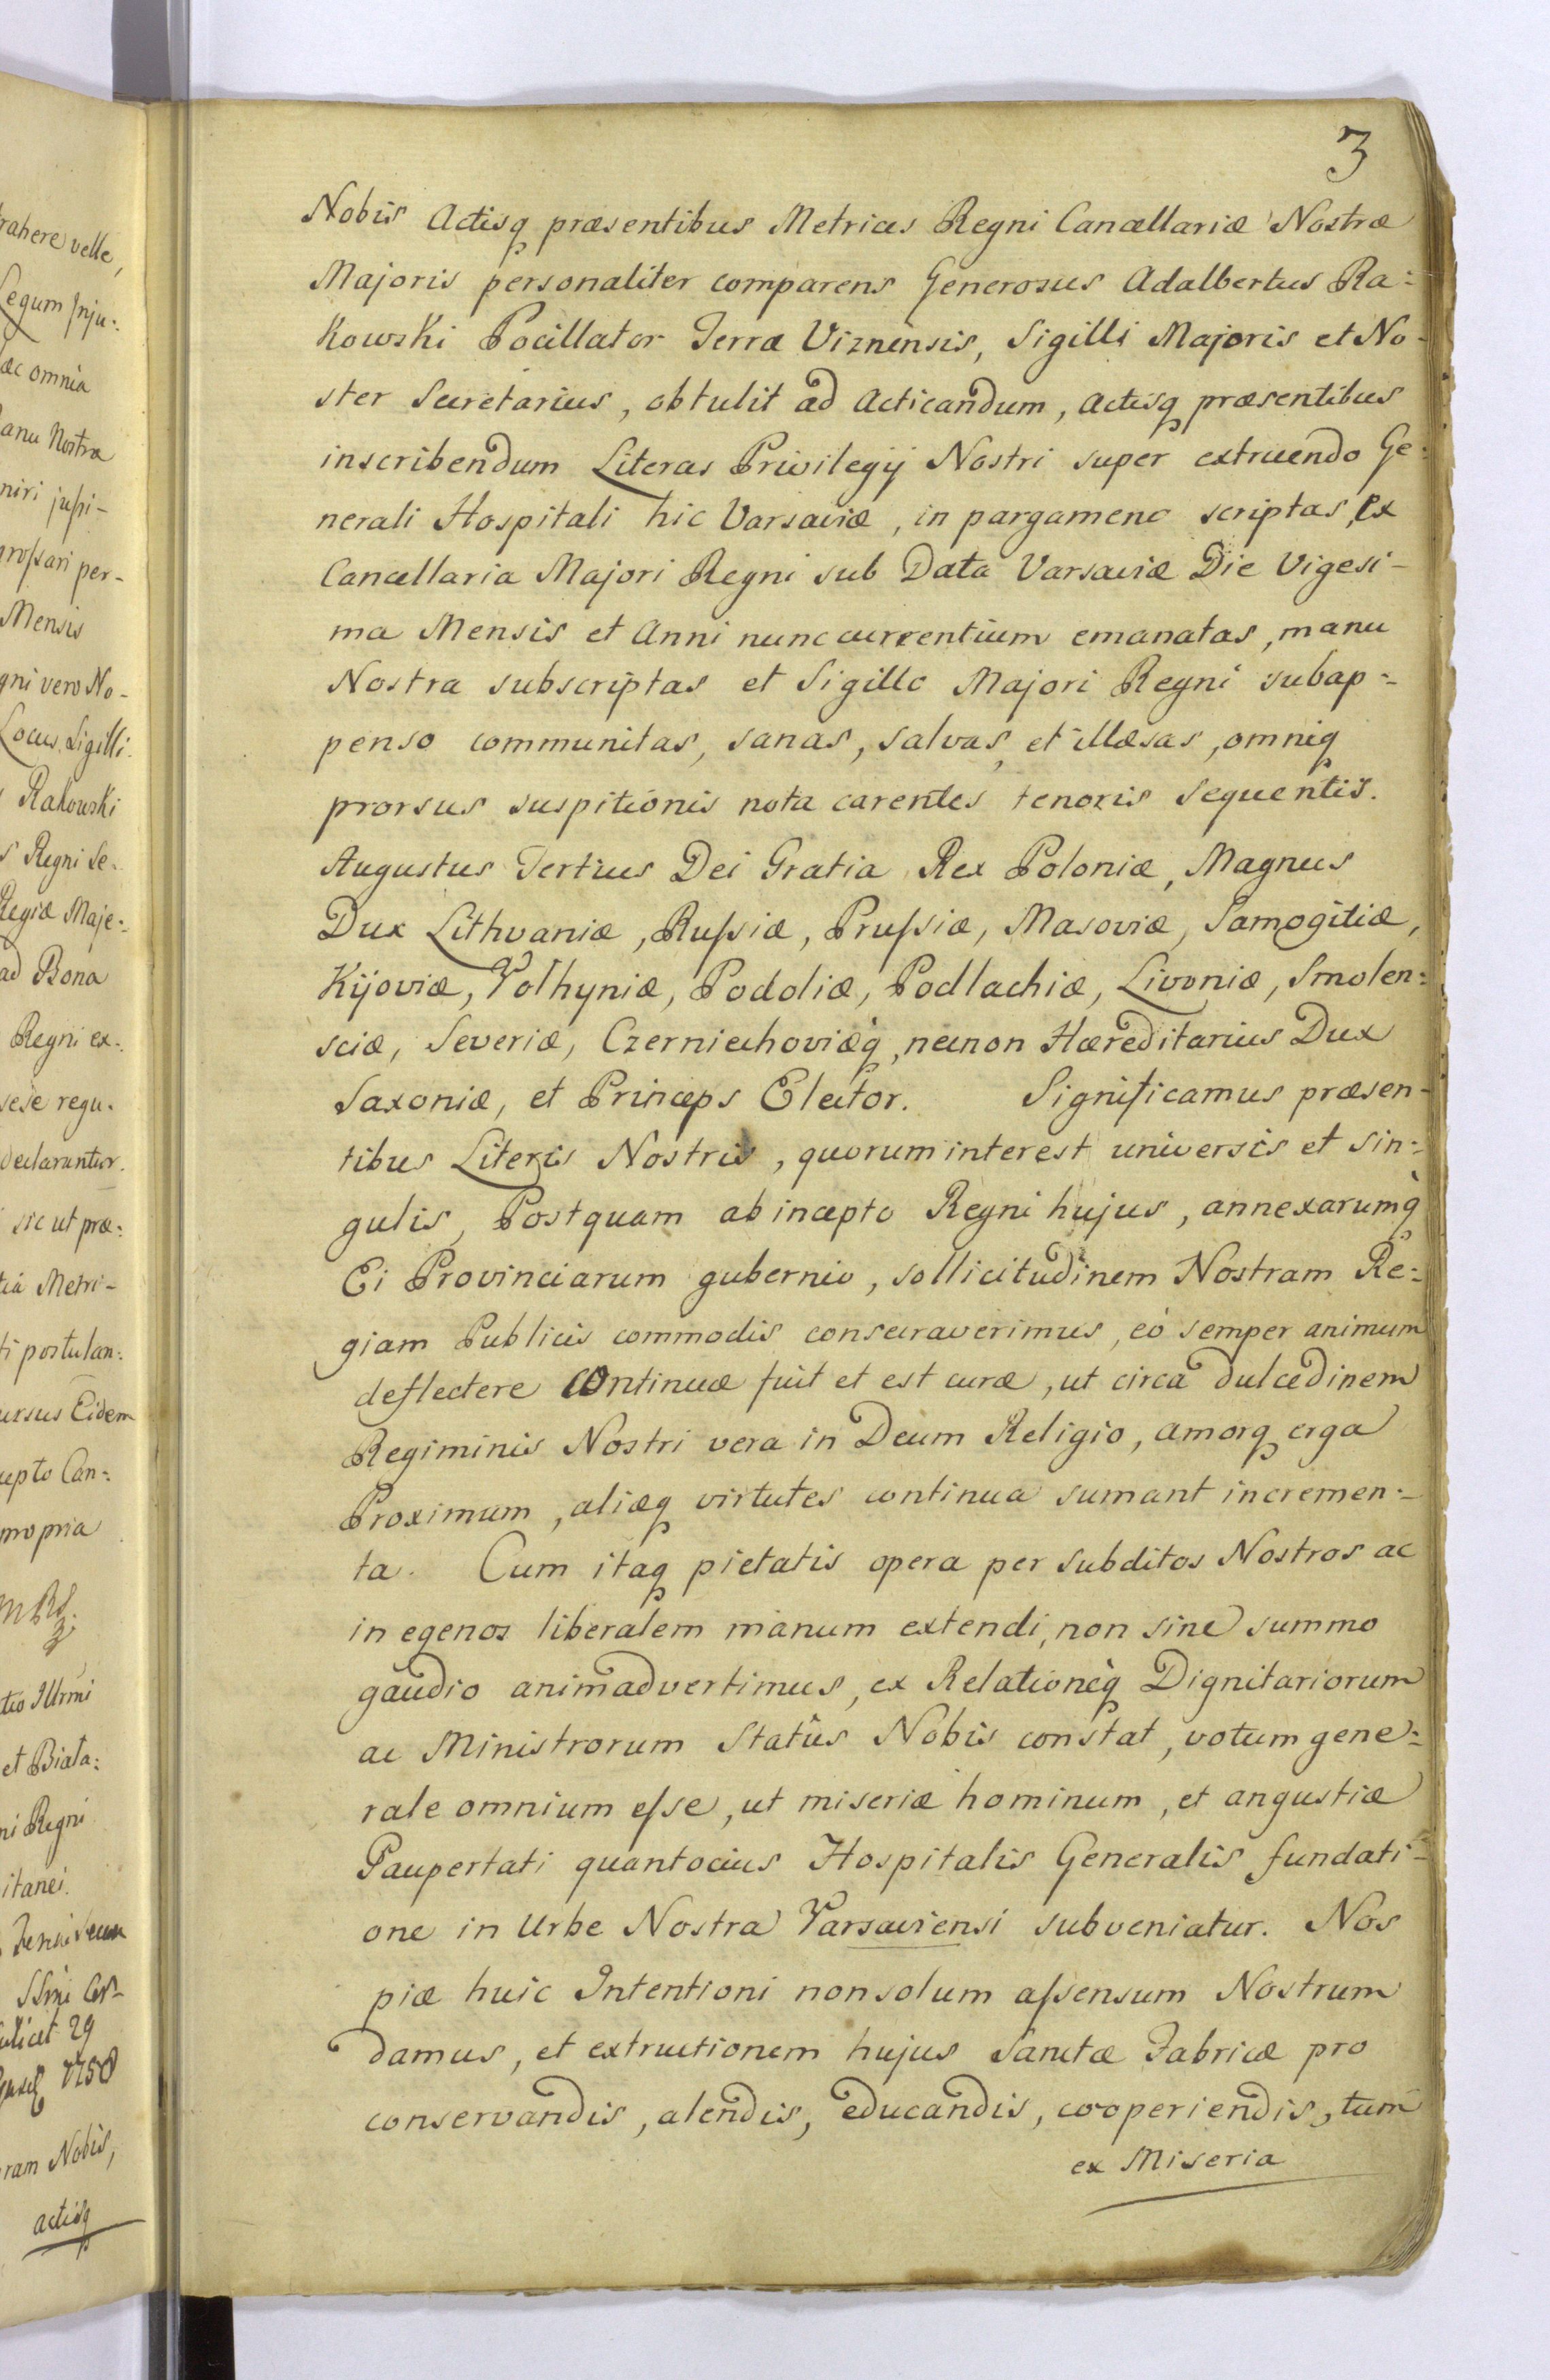 rahere velle,
Legum Inju-:
æc omnia
anu Nostra
niri jussi-
grossari per-
Mensis
gni vero No-
Locus Sigilli.
Rakowski
s Regni Se-
Regiæ Maje-:
ad Bona
Regni ex-:
sese regu-
declarantur.
sic ut præ:
tia Metri-
ti postulan:
ursus Eidem
cepto Can-:
propria
tio Illrmi
et Biała:
ni Regni
itanei.
29
1758
ram Nobis,
actisq
3
Nobis Actisq præsentibus Metrices Regni Cancellariæ Nostræ
Majoris personaliter comparens Generosus Adalbertus Ra-:
kowski Pocillator Terræ Viznensis, Sigilli Majoris et No-
ster Secretarius, obtulit ad Acticandum, actisq præsentibus
inscribendum Literas Privilegij Nostri super extruendo Ge-:
nerali Hospitali hic Varsaviæ, in pargameno scriptas, ex
Cancellaria Majori Regni sub Data Varsaviæ Die Vigesi-
ma Mensis et Anni nunc currentium emanatas, manu
Nostra subscriptas et Sigillo Majori Regni subap-:
penso communitas, sanas, salvas, et illæsas, omniq
prorsus suspitionis nota carentes tenoris sequentis.
Augustus Tertius Dei Gratia Rex Poloniæ, Magnus
Dux Lithvaniæ, Russiæ, Prussiæ, Masoviæ, Samogitiæ,
Kijoviæ, Volhyniæ, Podoliæ, Podlachiæ, Livoniæ, Smolen-:
sciæ, Severiæ, Czerniechoviæq, necnon Hæreditarius Dux
Saxoniæ, et Princeps Elector. Significamus præsen-
tibus Literis Nostris, quorum interest universis et sin-:
gulis, Postquam ab incepto Regni hujus, annexarumq
Ei Provinciarum gubernio, sollicitudinem Nostram Re-:
giam Publicis commodis consecraverimus, eò semper animum
deflectere continuæ fuit et est curæ, ut circa dulcedinem
Regiminis Nostri vera in Deum Religio, amorq erga
Proximum, aliæq virtutes continua sumant incremen-:
ta. Cum itaq pietatis opera per subditos Nostros ac
in egenos liberalem manum extendi, non sine summo
gaudio animadvertimus, ex Relationeq Dignitariorum
ac Ministrorum Statûs Nobis constat, votum gene-:
rale omnium esse, ut miseriæ hominum, et angustiæ
Paupertati quantocius Hospitalis Generalis fundati-:
one in Urbe Nostra Varsaviensi subveniatur. Nos
piæ huic Intentioni non solum assensum Nostrum
damus, et extructionem hujus Sanctæ Fabricæ pro
conservandis, alendis, educandis, cooperiendis, tum
ex Miseria